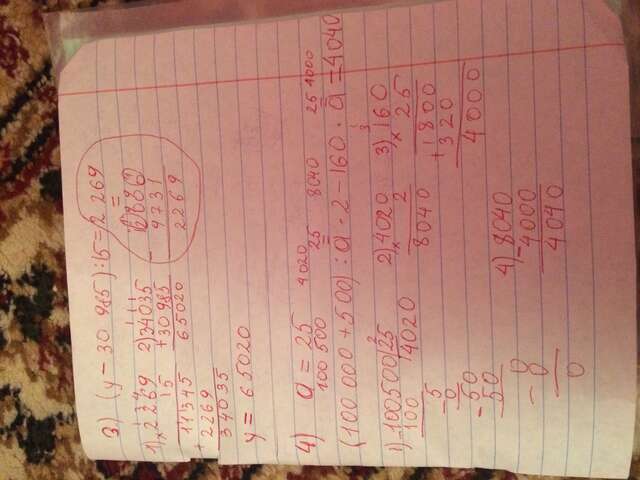 3) (y - 30 985) : 15 = 2 269
=
1) 2269 2) 34035 12000
× 15 + 30985 - 9731
11345 65020 2269
+ 2269
34035
y = 65020
4) a = 25 4020
100 500 25 8040 25 4000
(100 000 + 500) : a · 2 - 160 · a = 4040
1) 100500 | 25 2) 4020 3) 160
- 100 4020 × 2 × 25
5 8040 1800
- 0 + 320
50 4000
- 50
0 4) 8040
- 0 - 4000
0 4040